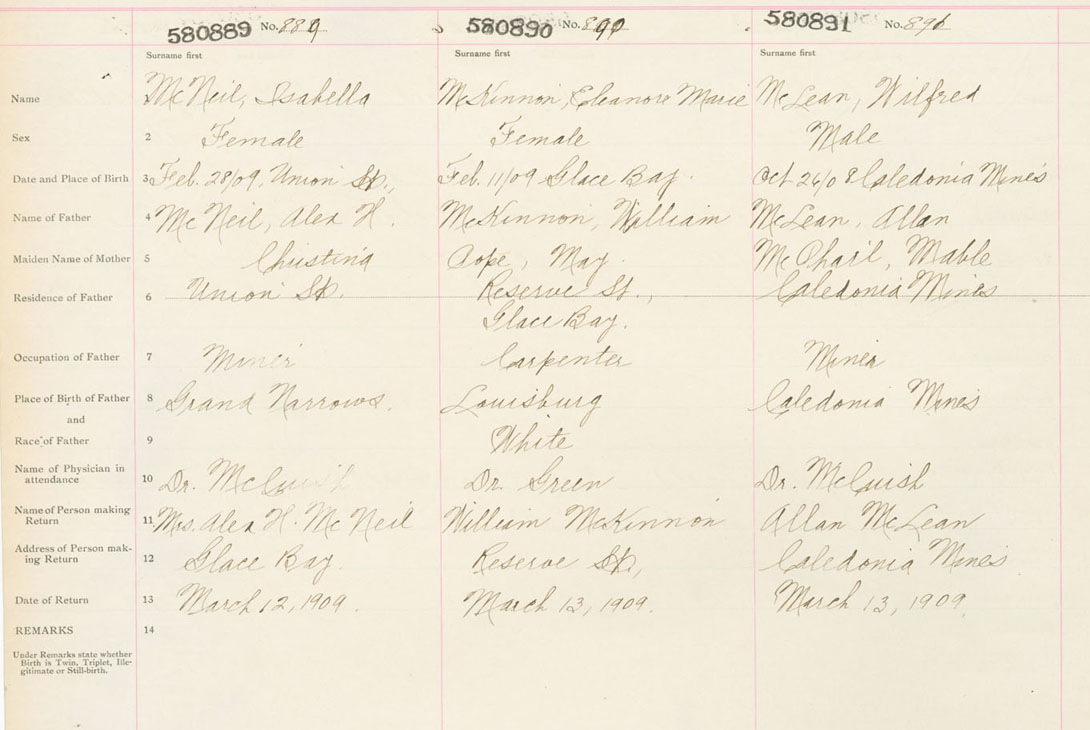 580889 No. 889 580890 No. 890 580891 No. 891
Surname first Surname first Surname first
Name McNeil, Isabella McKinnon, Eleanore Marie McLean, Wilfred
Sex 2 Female Female Male
Date and Place of Birth 3 Feb. 28/09, Union St., Feb. 11/09 Glace Bay. Oct 26/08 Caledonia Mines
Name of Father 4 McNeil, Alex H. McKinnon, William McLean, Allan
Maiden Name of Mother 5 Christina Pope, May. McPhail, Mable
Residence of Father 6 Union St. Reserve St., Caledonia Mines
Glace Bay.
Occupation of Father 7 Miner Carpenter Miner
Place of Birth of Father 8 Grand Narrows. Louisburg Caledonia Mines
and
Race of Father 9 White
Name of Physician in
attendance 10 Dr. McCuish Dr. Green Dr. McCuish
Name of Person making
Return 11 Mrs. Alex H. McNeil William McKinnon Allan McLean
Address of Person mak-
ing Return 12 Glace Bay. Reserve St., Caledonia Mines
Date of Return 13 March 12, 1909. March 13, 1909. March 13, 1909
REMARKS 14
Under Remarks state whether
Birth is Twin, Triplet, Ille-
gitimate or Still-birth.